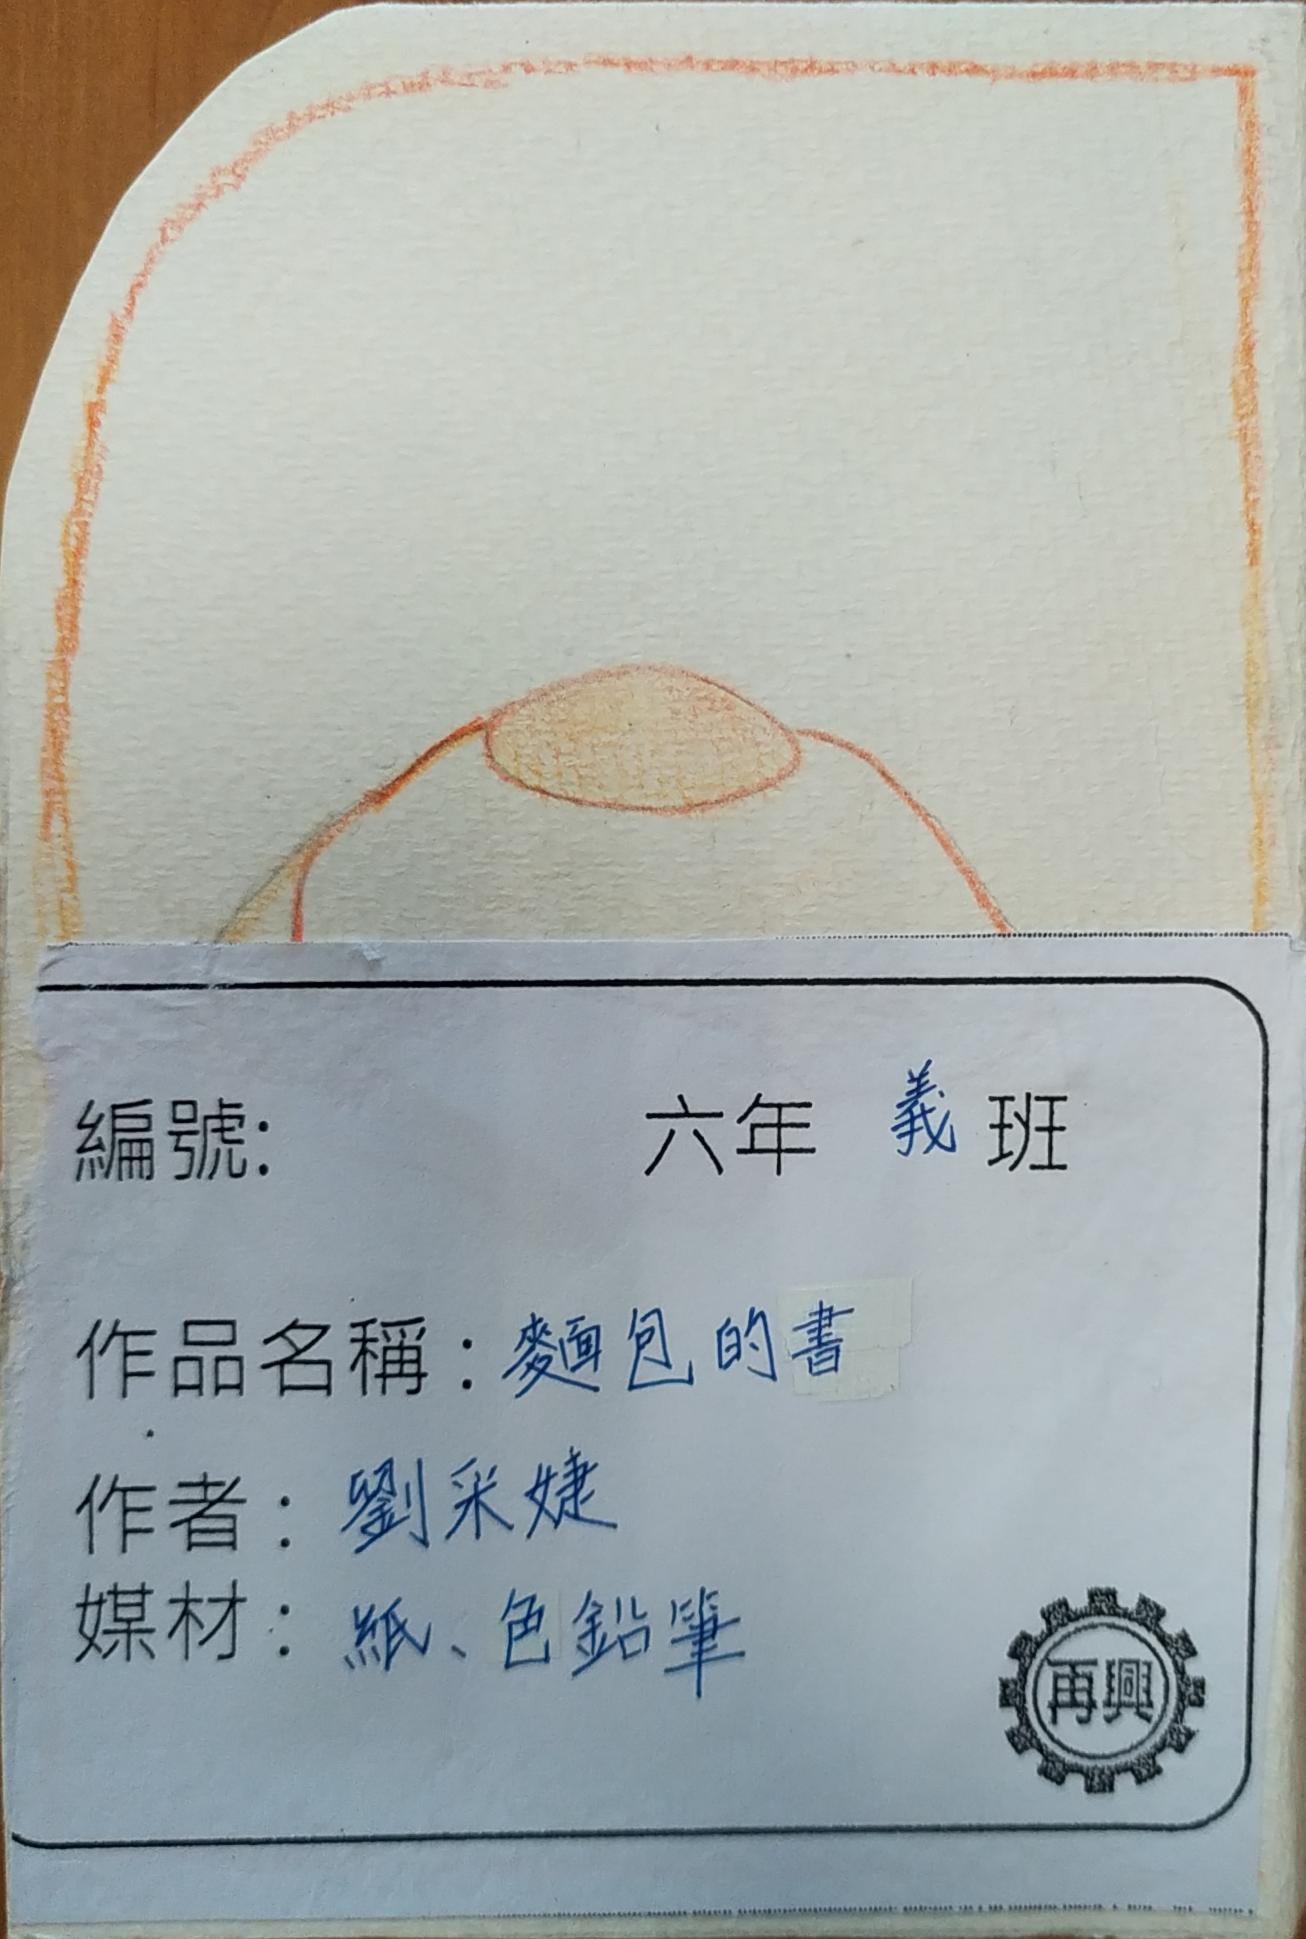 編號: 六年 義 班
作品名稱：麵包的書
作者：劉采婕
媒材：紙、色鉛筆
再興